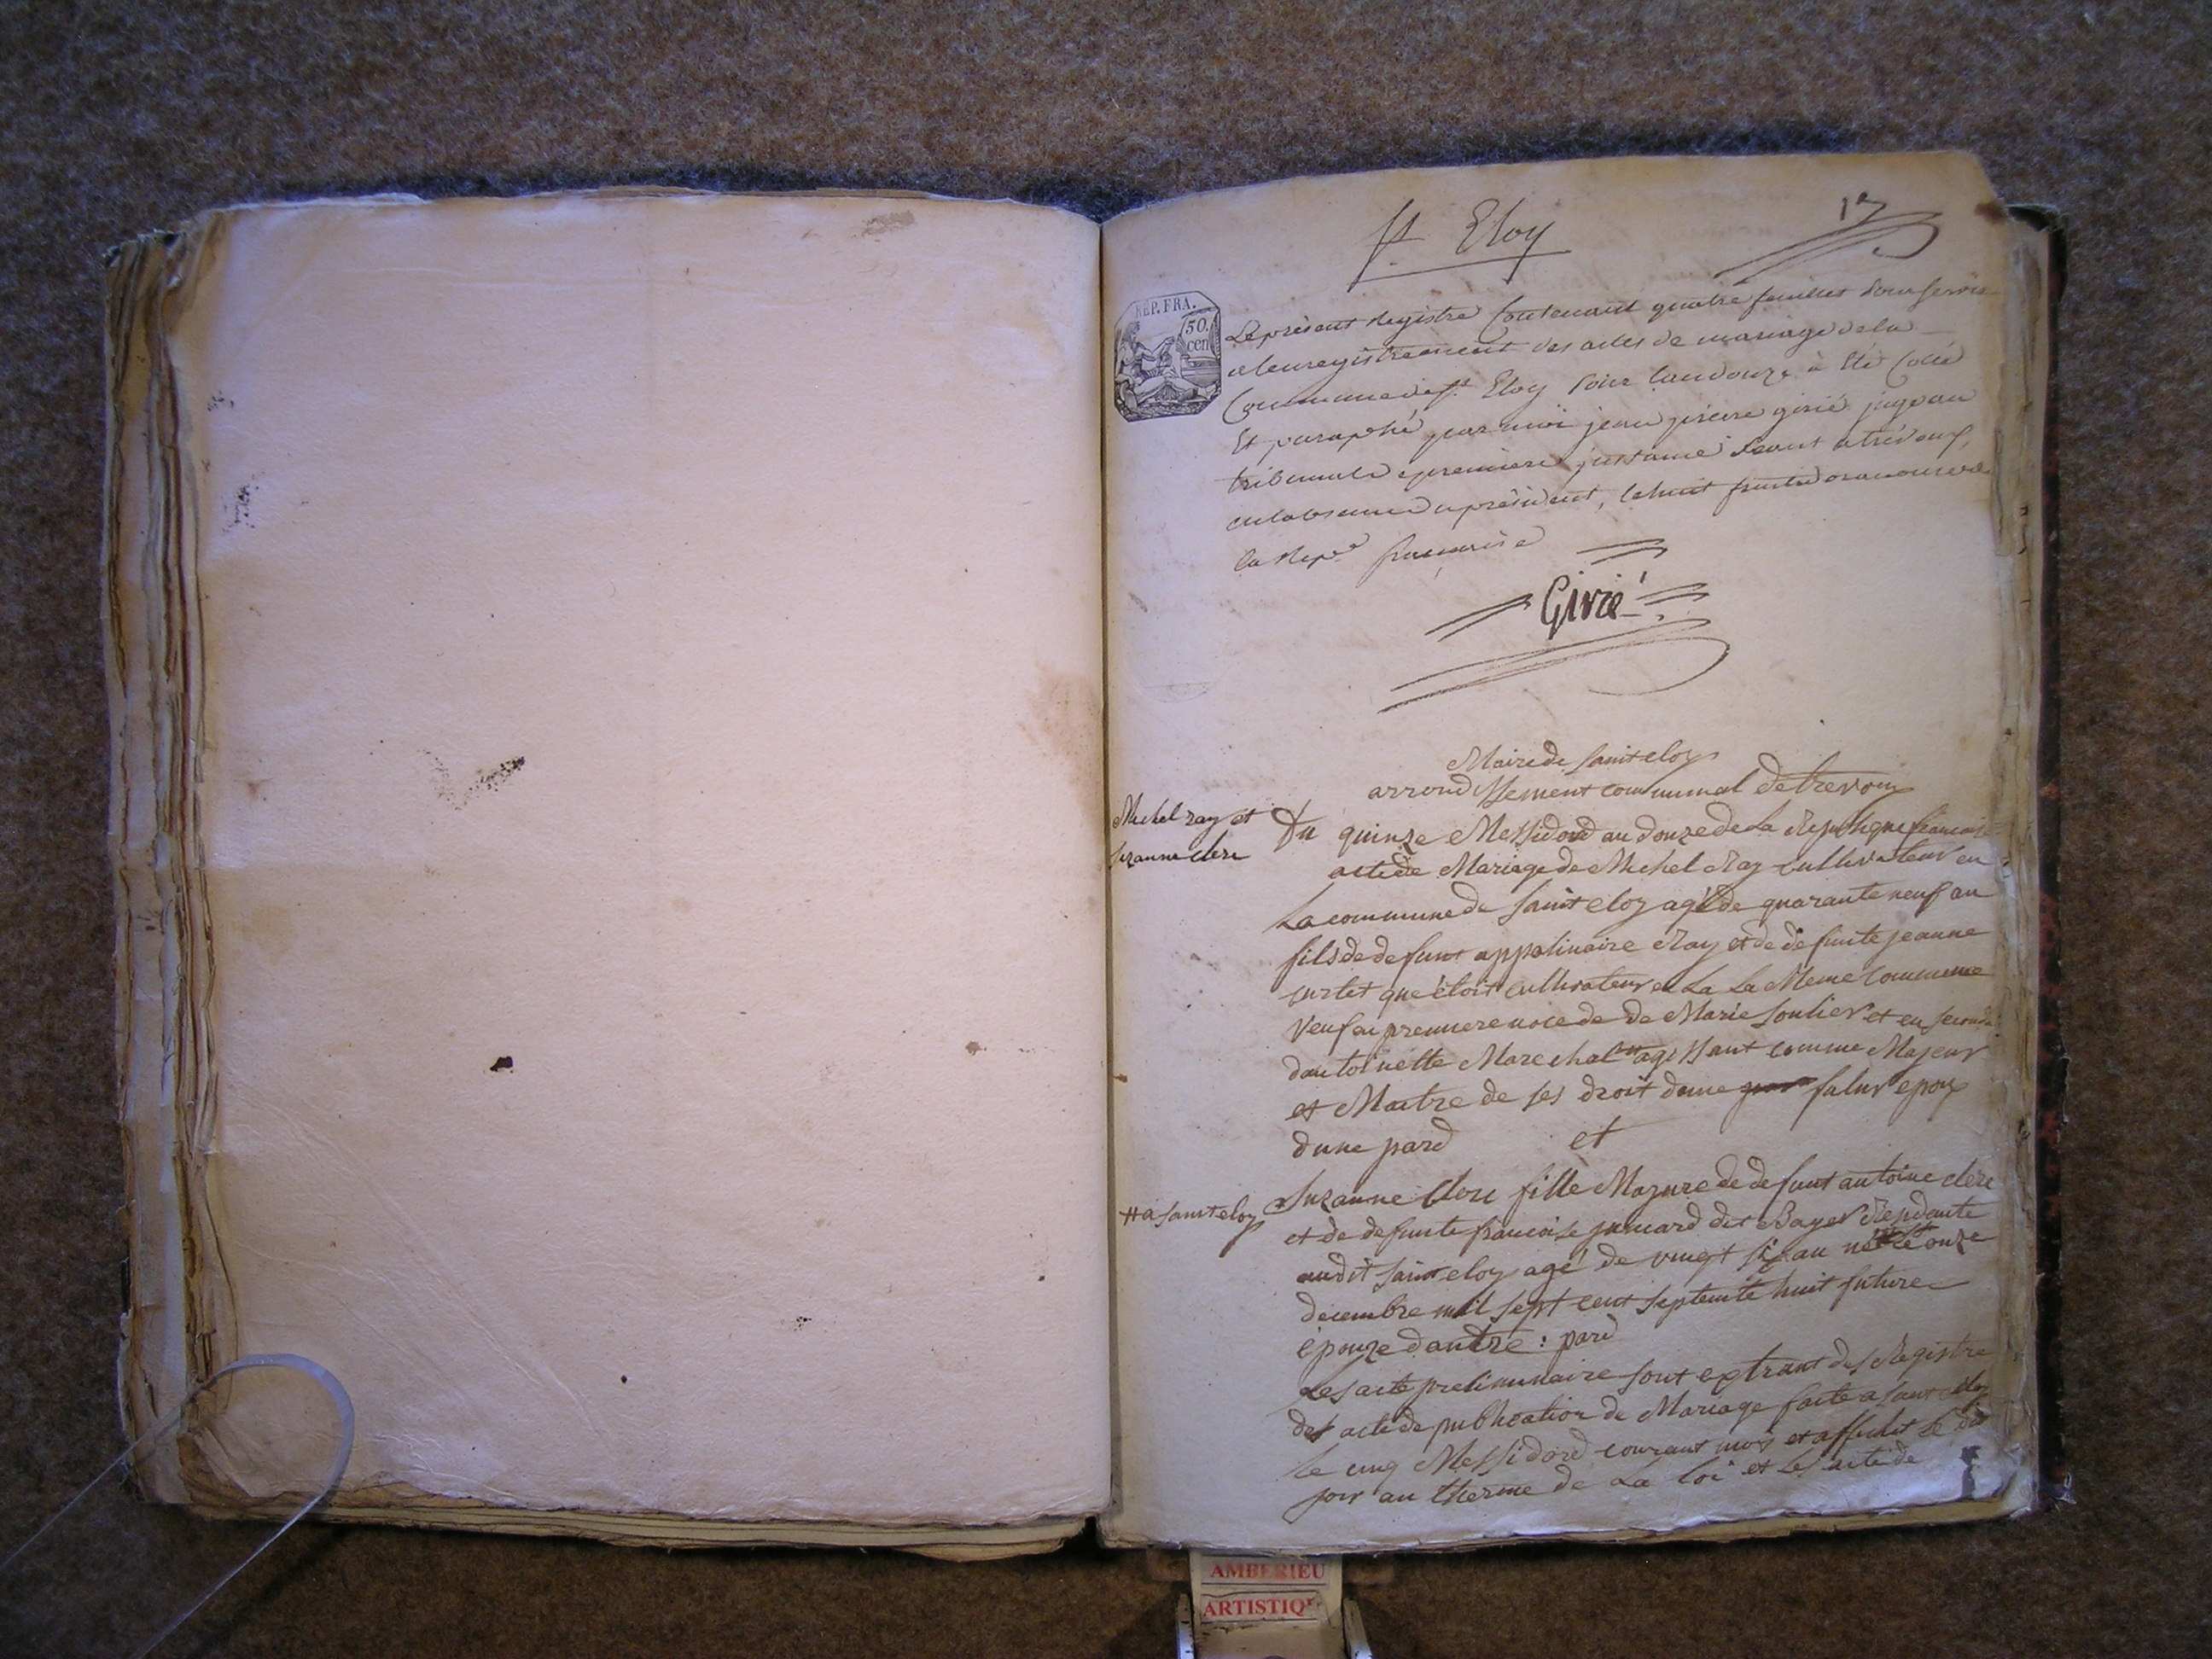 St. Eloy
12
REP. FRA.
50.
cen
Le présent Registre Contenant quatre feuillets pour servir
a lenregistrement des actes de mariage de la
Commune de St. Eloy pour lan douze à Eté Coté
Et paraphé par moi jean pierre girié juge au
tribunal de premiere instance séant a trévoux,
en labsence du président, le huit fructidor an onze de
la Rep.e francaise
Girié
Mairie de saint eloy
arrondissement communal de trevoux
Michel ray et
suzanne clere
Du quinze Messidord an douze de La Republique francaise
acte de Mariage de Michel Ray cultivateur en
La commune de saint eloy agé de quarante neuf an
fils de defunt appolinaire Ray et de defunte jeanne
curtet que étoit cultivateur a La La Meme commune
Veuf en premiere noce de de Marie soulier et en seconde
dantoinette Marechal # agissant comme Majeur
et Maitre de ses droit dune futur epoux
dune pard et
# a saint eloy
Suzanne Clere fille Majure de defunt antoine clere
et de defunte francoise jumard dit Bayer Residante
audit saint eloy agé de vingt six an née le onze
decembre mil sept cent septente huit future
épouze dautre : pard
Les acte preliminaire sont extrant des Registre
des acte de publication de Mariage faite a saint eloy
le cinq Messidord courant mois et affichet le dit
jour au therme de La loi et les acte de
AMBERIEU
ARTISTIQ